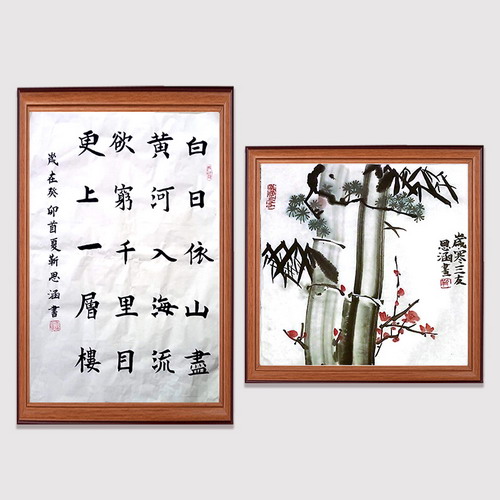 白日依山盡
黃河入海流
欲窮千里目
更上一層樓
歲在癸卯首夏靳思涵書
歲寒三友
思涵畫